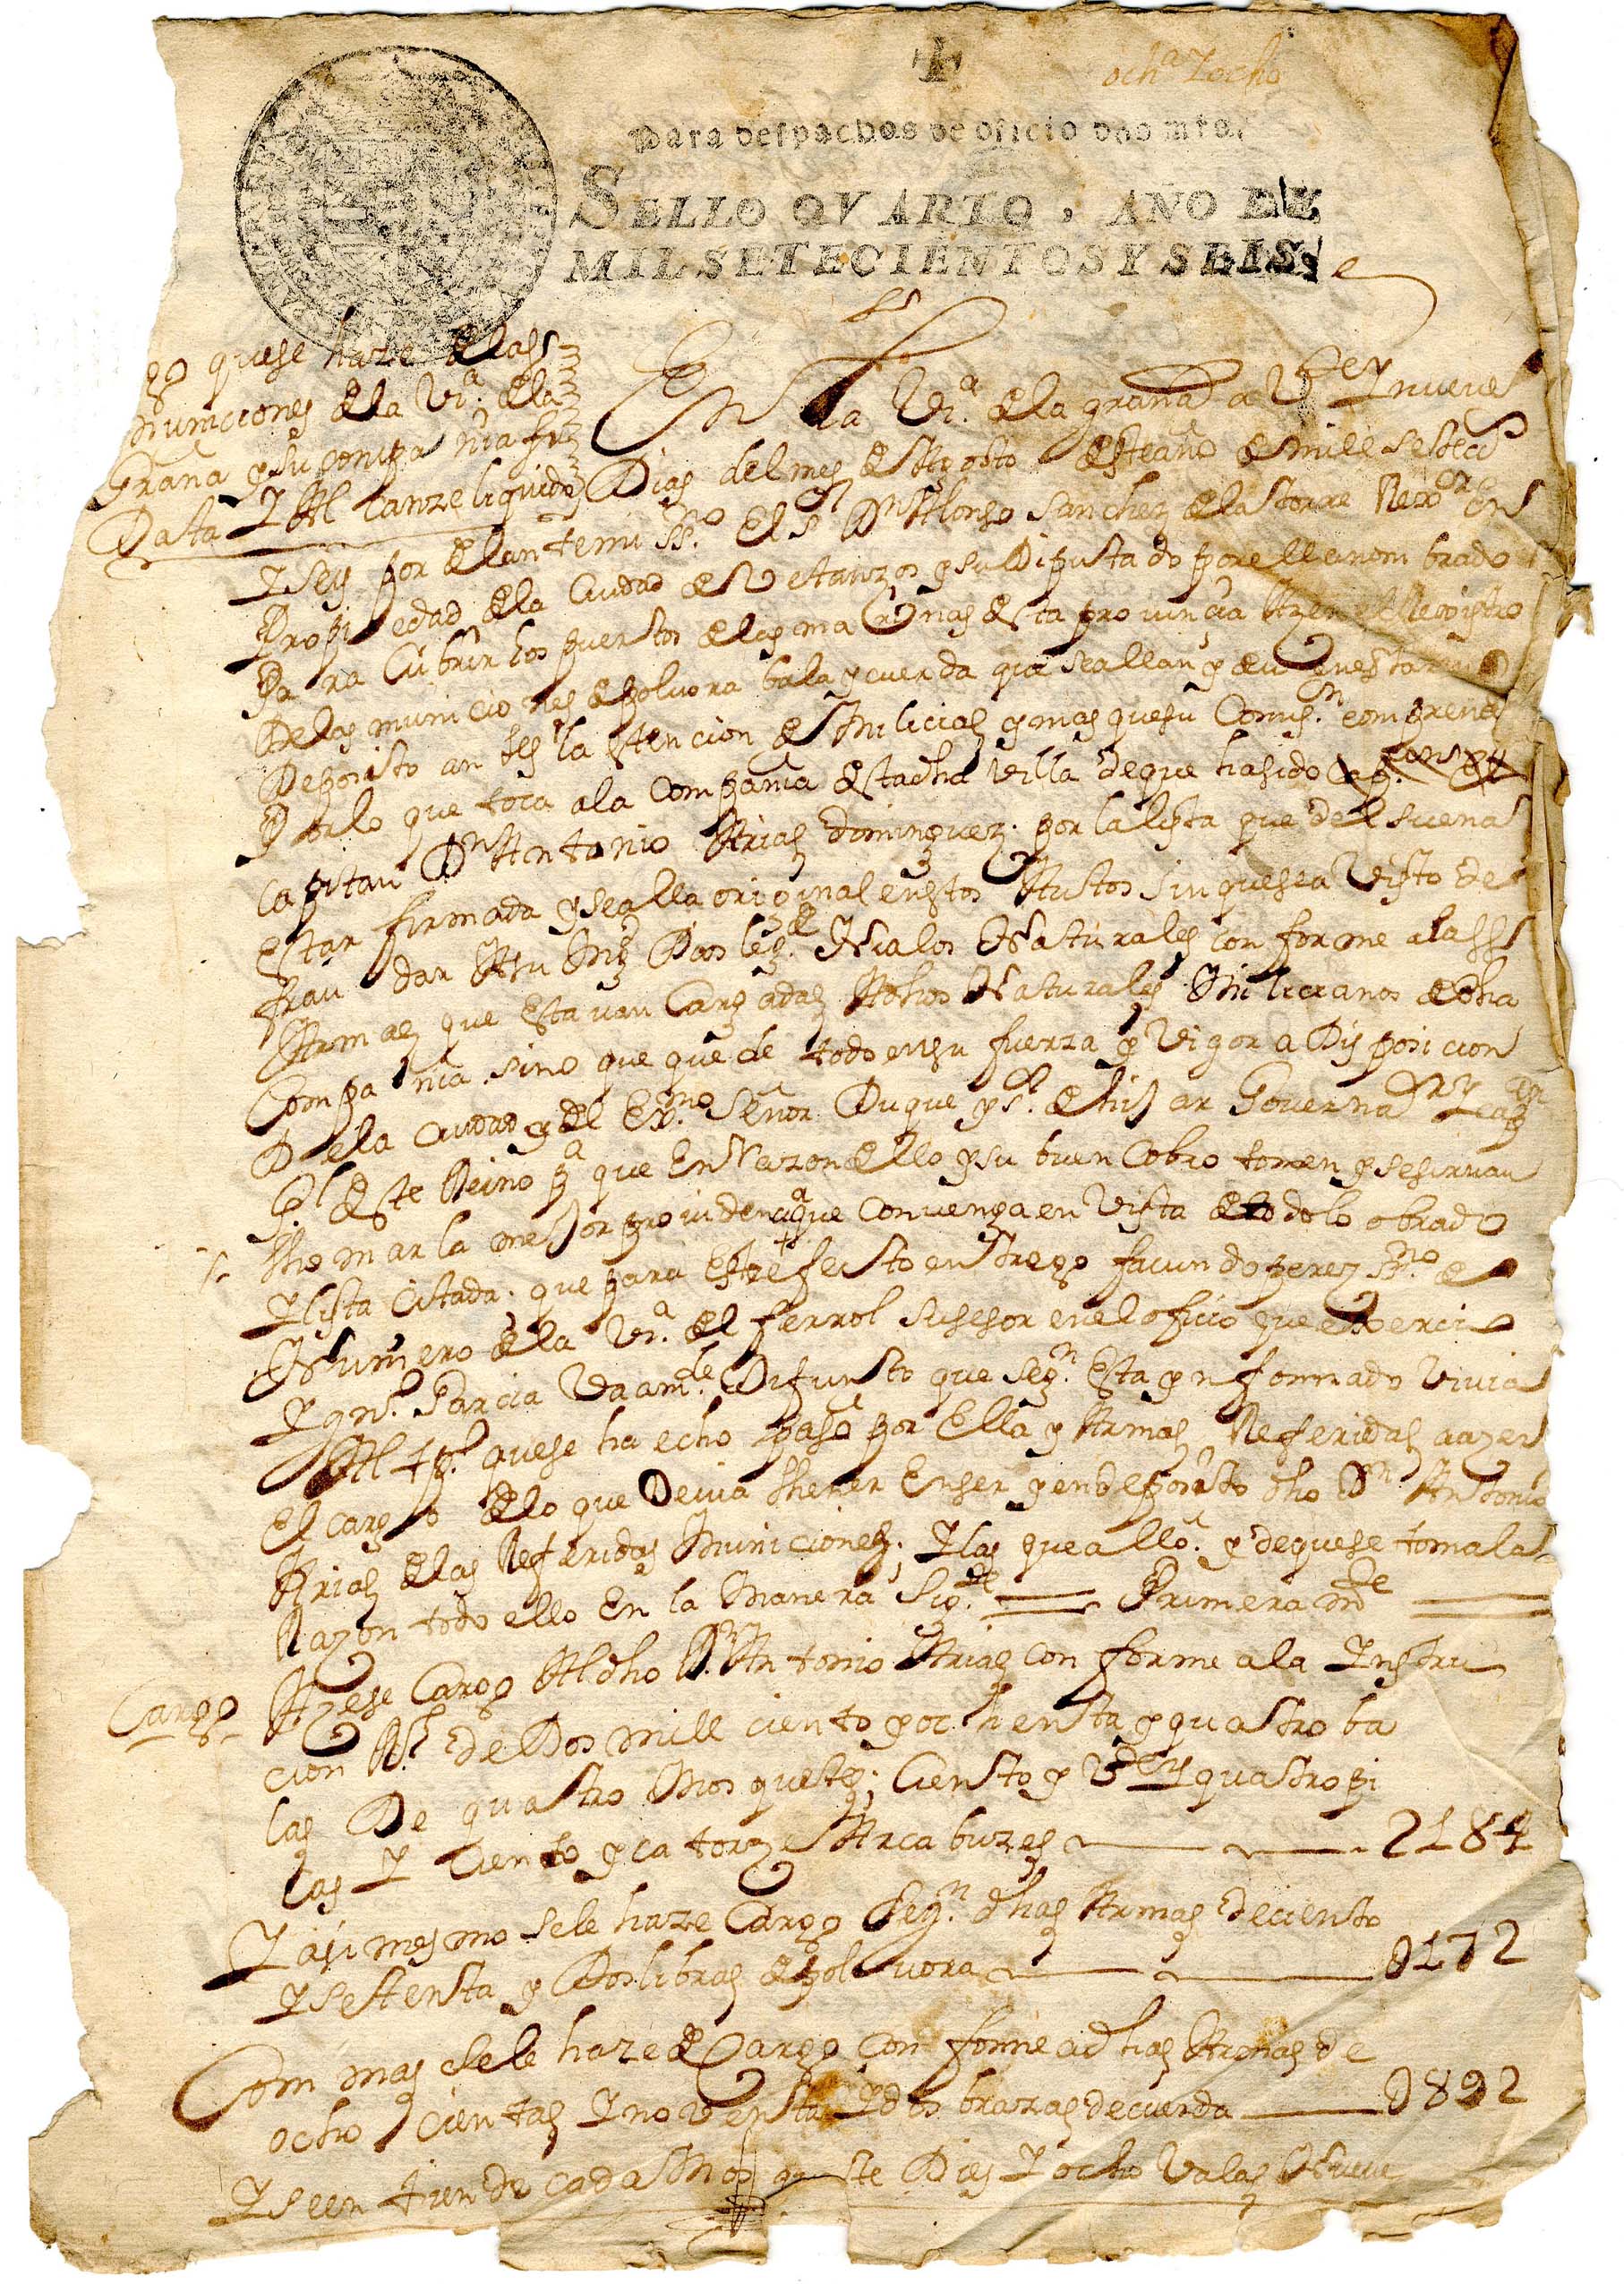 ochᵃ Y ocho
Para despachos de oficio dos mrs.
SELLO QVARTO, AÑO DE
MIL SETECIENTOS Y SEIS.
go que se haze de las
municiones de la Vi.ª de la
Graña y su compañia
Data Y Alcanze liquido
En la Vi.ª de la graña a Vᵗᵉ Y nueve
Dias del mes de Agosto deste año de mill setteçi
Y seis por delante mi ss.ⁿᵒ El s.ʳ Dⁿ Alonso Sanchez de las torre Rexᵒʳ En
Propiedad de la Ciudad de Vetanzos y su Diputado por ella nombrado
Para Cubrir los puertos de las marinas desta provincia Azer el Rexistro
De las municiones de polvora bala y cuerda que se allan y deven estar en
Deposito antes la Atencion de Milicias y mas que su Comis.ⁿ comprende
Por lo que toca a la Compañia desta dha villa de que ha sido
Capitan Dⁿ Antonio Arias dominguez. por la lista que del suena
Estar firmada y se alla original enestos Autos sin que sea visto de
fraudar A su Mgᵈ Dios le gᵈᵉ. Ni a los Naturales conforme a lass
Armas que Estavan Cargadas A dhos Naturales Milicianos de dha
Compañia. sino que quede todo en su fuerza y vigor a Disposicion
De la ciudad y del Ex.ᵐᵒ Señor Duque y s.ʳ de hijar Governaᵒʳ Y Capⁿ
G.ˡ deste Reino pª que En Razon dello y su buen Cobro tomen y se sirvan
thomar la mejor providencia que Convenga en Vista de todo lo obrado
Y lista Citada. que para Este efecto entrego facundo perez ss.ⁿᵒ de
Numero de la Vi.ª del ferrol susesor en el oficio que exerci
Ygn.º Garcia Vaam.ᵈᵉ Difunto que seg.ⁿ Esta ynformado vivia
Al tp.º que se ha echo paso por Ella y Armas Referidas a azer
El cargo de lo que Devia thener Enser y en deposito dho Dⁿ Antonio
Arias de las Referidas Municiones. Y las que allo. y de que se toma la
Razon todo ello En la Manera Sig.ᵗᵉ Primeramᵗᵉ
Cargo
Azese Cargo Al dho D.ⁿ Antonio Arias conforme a la Ynstru
cion R.ˡ de Dos mill ciento y ochenta y quatro ba
las De quatro Mosquetes; Ciento y Vᵗᵉ Y quatro pi
cas Y Ciento y catorze Arcabuzes 2184
Y asimesmo se le haze Cargo Seg.ⁿ dhas Armas de ciento
Y settenta y Dos libras de polvora 0172
Com mas se le haze de Cargo conforme a dhas Armas de
ocho cientas Y noventa Y dos brazas de cuerda 0892
Y se entiende cada Mosquete Dies Y ocho valas Nueve